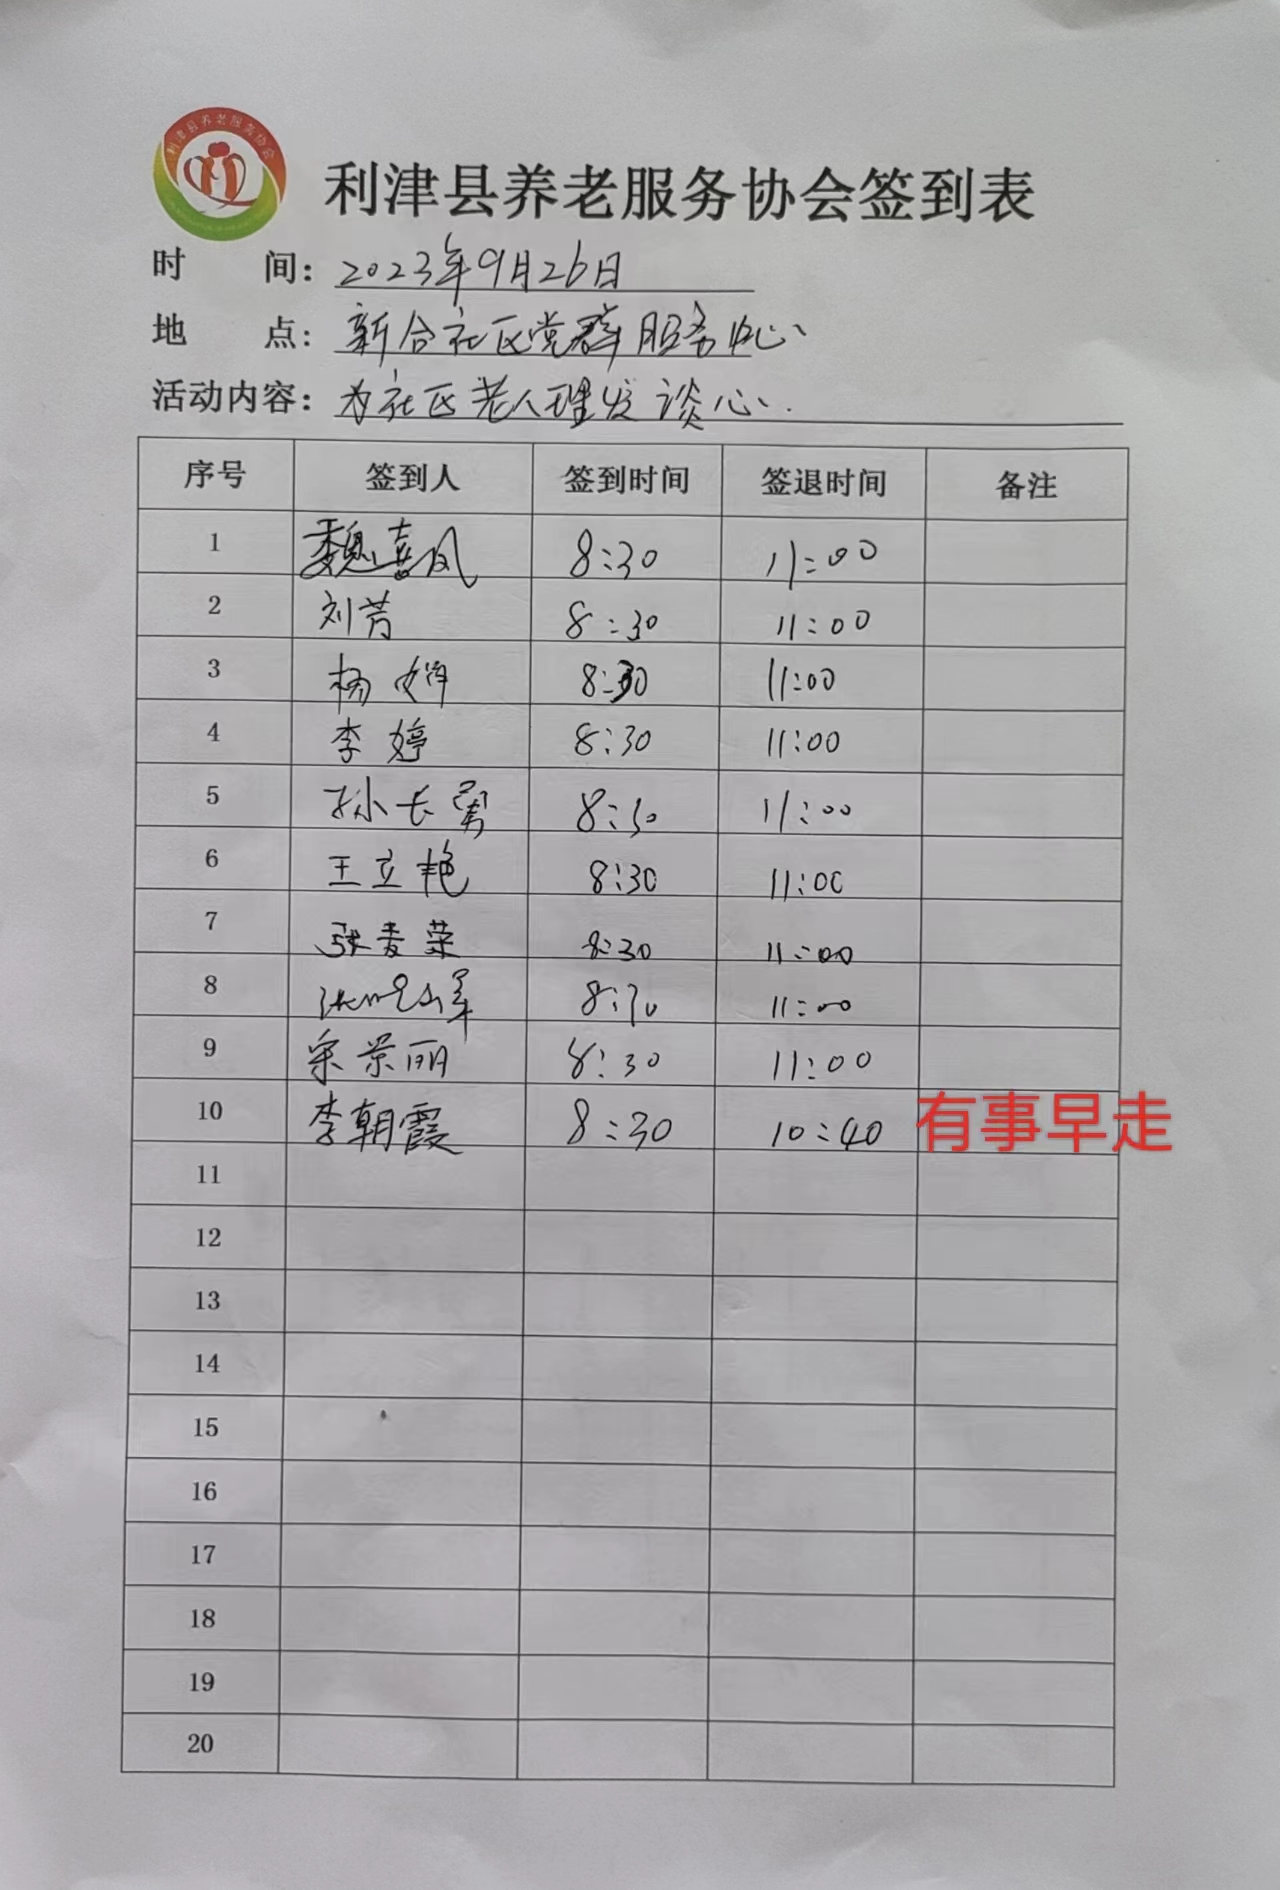 利津县养老服务协会
利津县养老服务协会签到表
时 间：2023年9月26日
地 点：新合社区党群服务中心
活动内容：为社区老人理发谈心.
序号 签到人 签到时间 签退时间 备注
1 魏喜凤 8:30 11:00
2 刘芳 8:30 11:00
3 杨 8:30 11:00
4 李婷 8:30 11:00
5 孙长勇 8:30 11:00
6 王立艳 8:30 11:00
7 张麦荣 8:30 11:00
8 8:30 11:00
9 宋景丽 8:30 11:00
10 李朝霞 8:30 10:40 有事早走
11
12
13
14
15
16
17
18
19
20